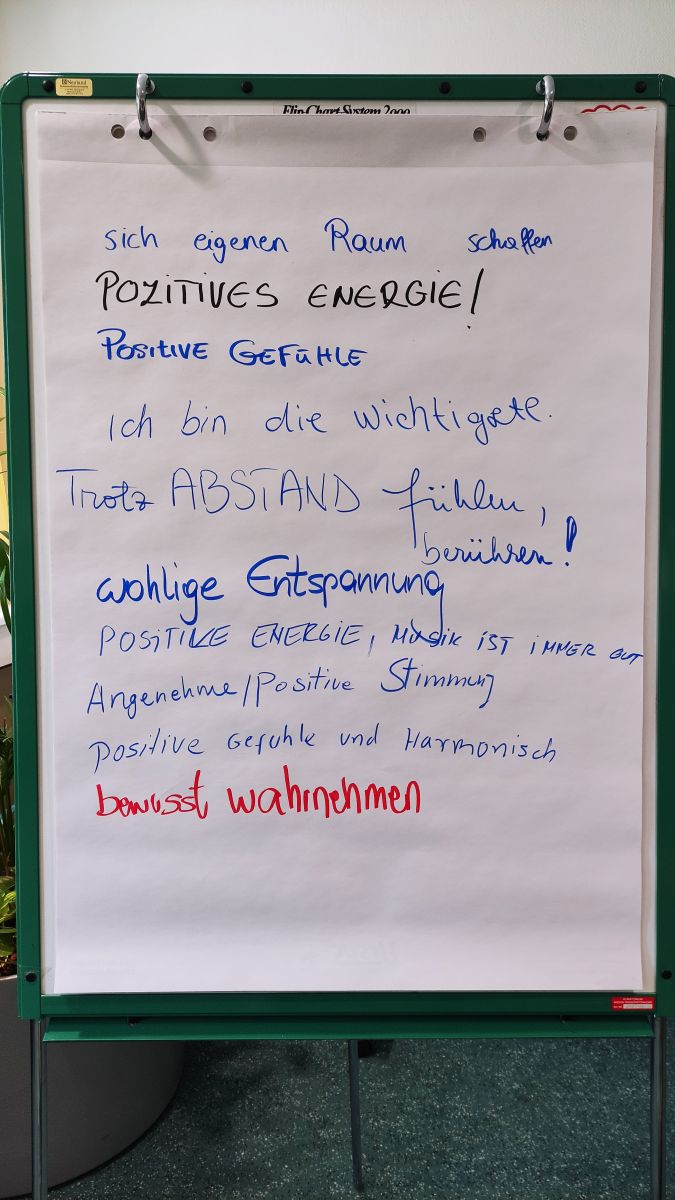 Neuland
Flip-Chart-System 2000
sich eigenen Raum schaffen
POZITIVES ENERGIE!
POSITIVE GEFÜHLE
Ich bin die wichtigste.
Trotz ABSTAND fühlen,
berühren!
wohlige Entspannung
POSITIVE ENERGIE, MUSIK IST IMMER GUT
Angenehme/Positive Stimmung
positive Gefühle und Harmonisch
bewusst wahrnehmen